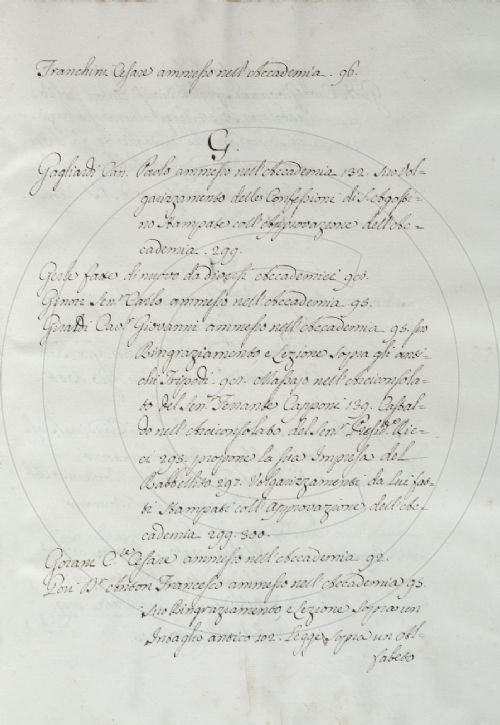 Franchini Cesare ammesso nell'Accademia. 96.
G.
Gagliardi Can. Paolo ammesso nell'Accademia 132. suo Vol-
garizzamento delle Confessioni di S. Agosti-
no Stampate coll'Approvazione dell'Ac-
cademia. 299.
fatte di nuovo da diversi Accademici
Ginori Sen.r Carlo ammesso nell'Accademia 95.
Giraldi Cav.r Giovanni ammesso nell'Accademia 95. suo
Ringraziamento e Lezione sopra gli anti-
chi Tripodi. Massajo nell'Arciconsola-
to del Sen.r Tenente Capponi 139. Castal-
do nell'Arciconsolato del Sen.r Presid.e Ric-
ci 293. propone la sua Impresa del
297. Volgarizzamenti da lui fat-
ti Stampati coll'Approvazione dell'Ac-
cademia 299. 300.
C.te Cesare ammesso nell'Accademia 92.
Gori D.r Anton Francesco ammesso nell'Accademia 95.
suo Ringraziamento, e Lezione sopra un
Intaglio antico 102. Legge sopra un Al-
fabeto